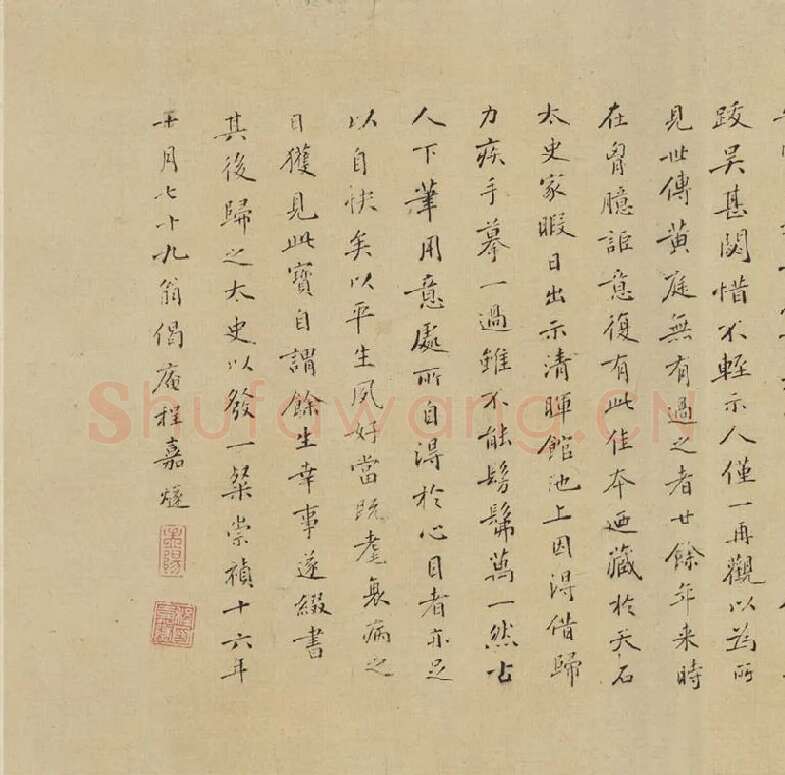 跋吴甚閟惜不輕示人僅一再觀以為所
見世傳黄庭無有過之者廿餘年来時
在胷臆詎意復有此佳本迺藏於天石
太史家暇日出示清暉館池上因得借歸
力疾手摹一過雖不能髣髴萬一然古
人下筆用意處所自得於心目者亦足
以自快矣以平生夙好當既耄衰病之
日獲見此寶自謂餘生幸事遂綴書
其後歸之太史以發一粲崇禎十六年
十月七十九翁偈庵程嘉燧
Shufawang.CN